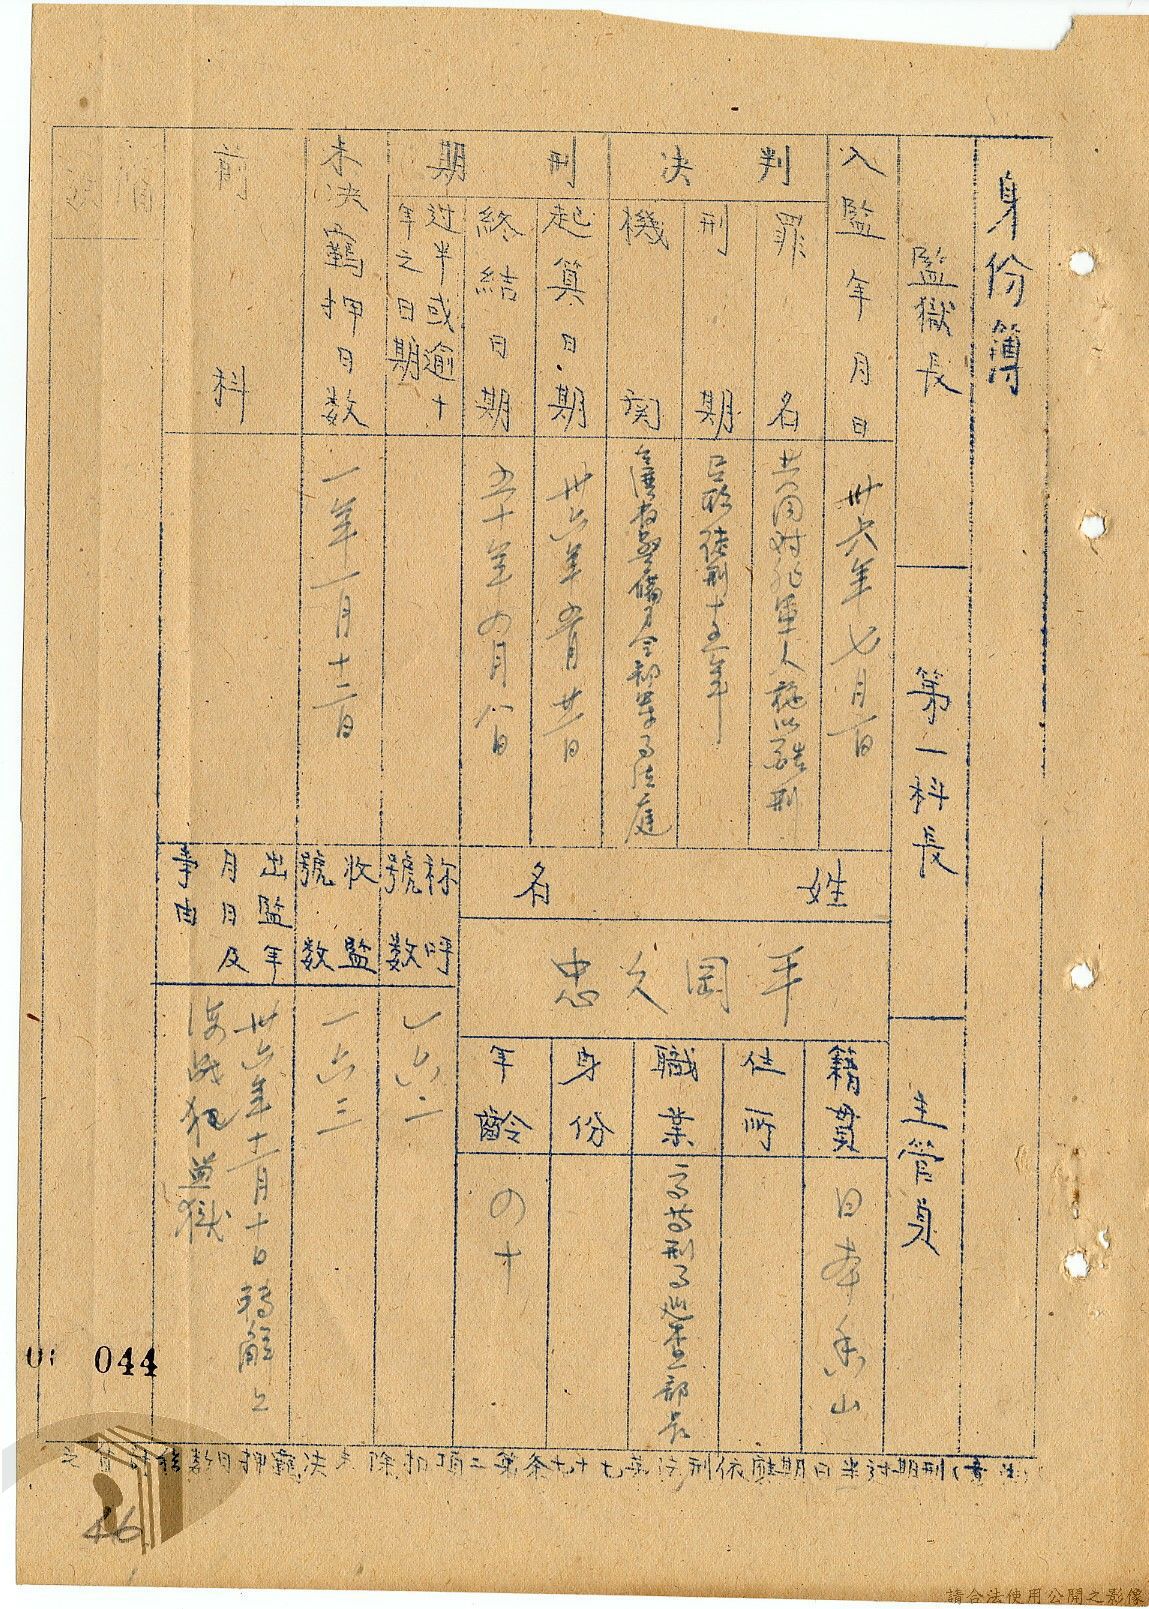 身份簿
監獄長
第一科長
主管員
入監年月日
卅六年七月一日
判決
罪名
共同對非軍人施以酷刑
刑期
有期徒刑十五年
機関
台灣省警備司令部軍事法庭
刑期
起算日期
卅六年五月廿一日
終結日期
五十年四月八日
过半或逾十
年之日期
未決羈押日数
一年一月十二日
前科
姓名
平岡久忠
籍貫
日本
山
住所
職業
部長
身份
年齡
四十
称呼
號数
一六二
收監
號数
一六三
出監年
月日及
事由
卅六年十一月十日移解上
海战犯监獄
044
46
刑期过半日期應依刑法第七十七条第二項扣除未決羈押日数
請合法使用公開之影像